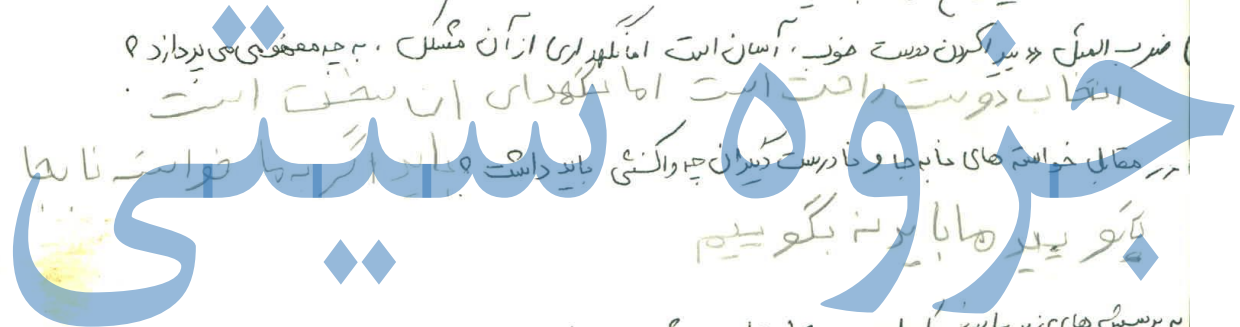 ضرب المثل «پیدا کردن دوست خوب، آسان است اما نگهداری از آن مشکل، به چه مفهومی می پردازد؟
انتخاب دوست راحت است اما نگهدای ان سخت است
در مقابل خواسته های نا به جا و نادرست دیگران چه واکنشی باید داشت؟ باید اگر به ما خواسته نا بجا
بگو یید ما باید نه بگو ییم
جزوه سیتی